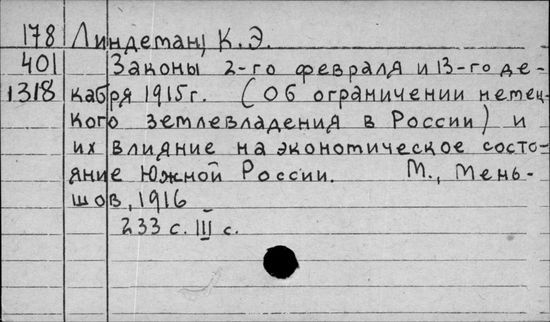 178 Линдеман, К.Э.
401 Законы 2-го февраля и 13-го де-
1318 кабря 1915г. (Об ограничении немец-
кого землевладения в России) и
их влияние на экономическое состо-
яние Южной России. М., Мень-
шов, 1916
233 с. III с.